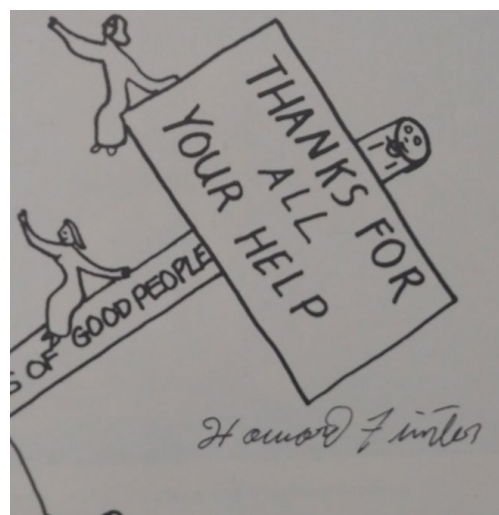 THANKS FOR
ALL
YOUR HELP
S OF GOOD PEOPLE
Howard Finster